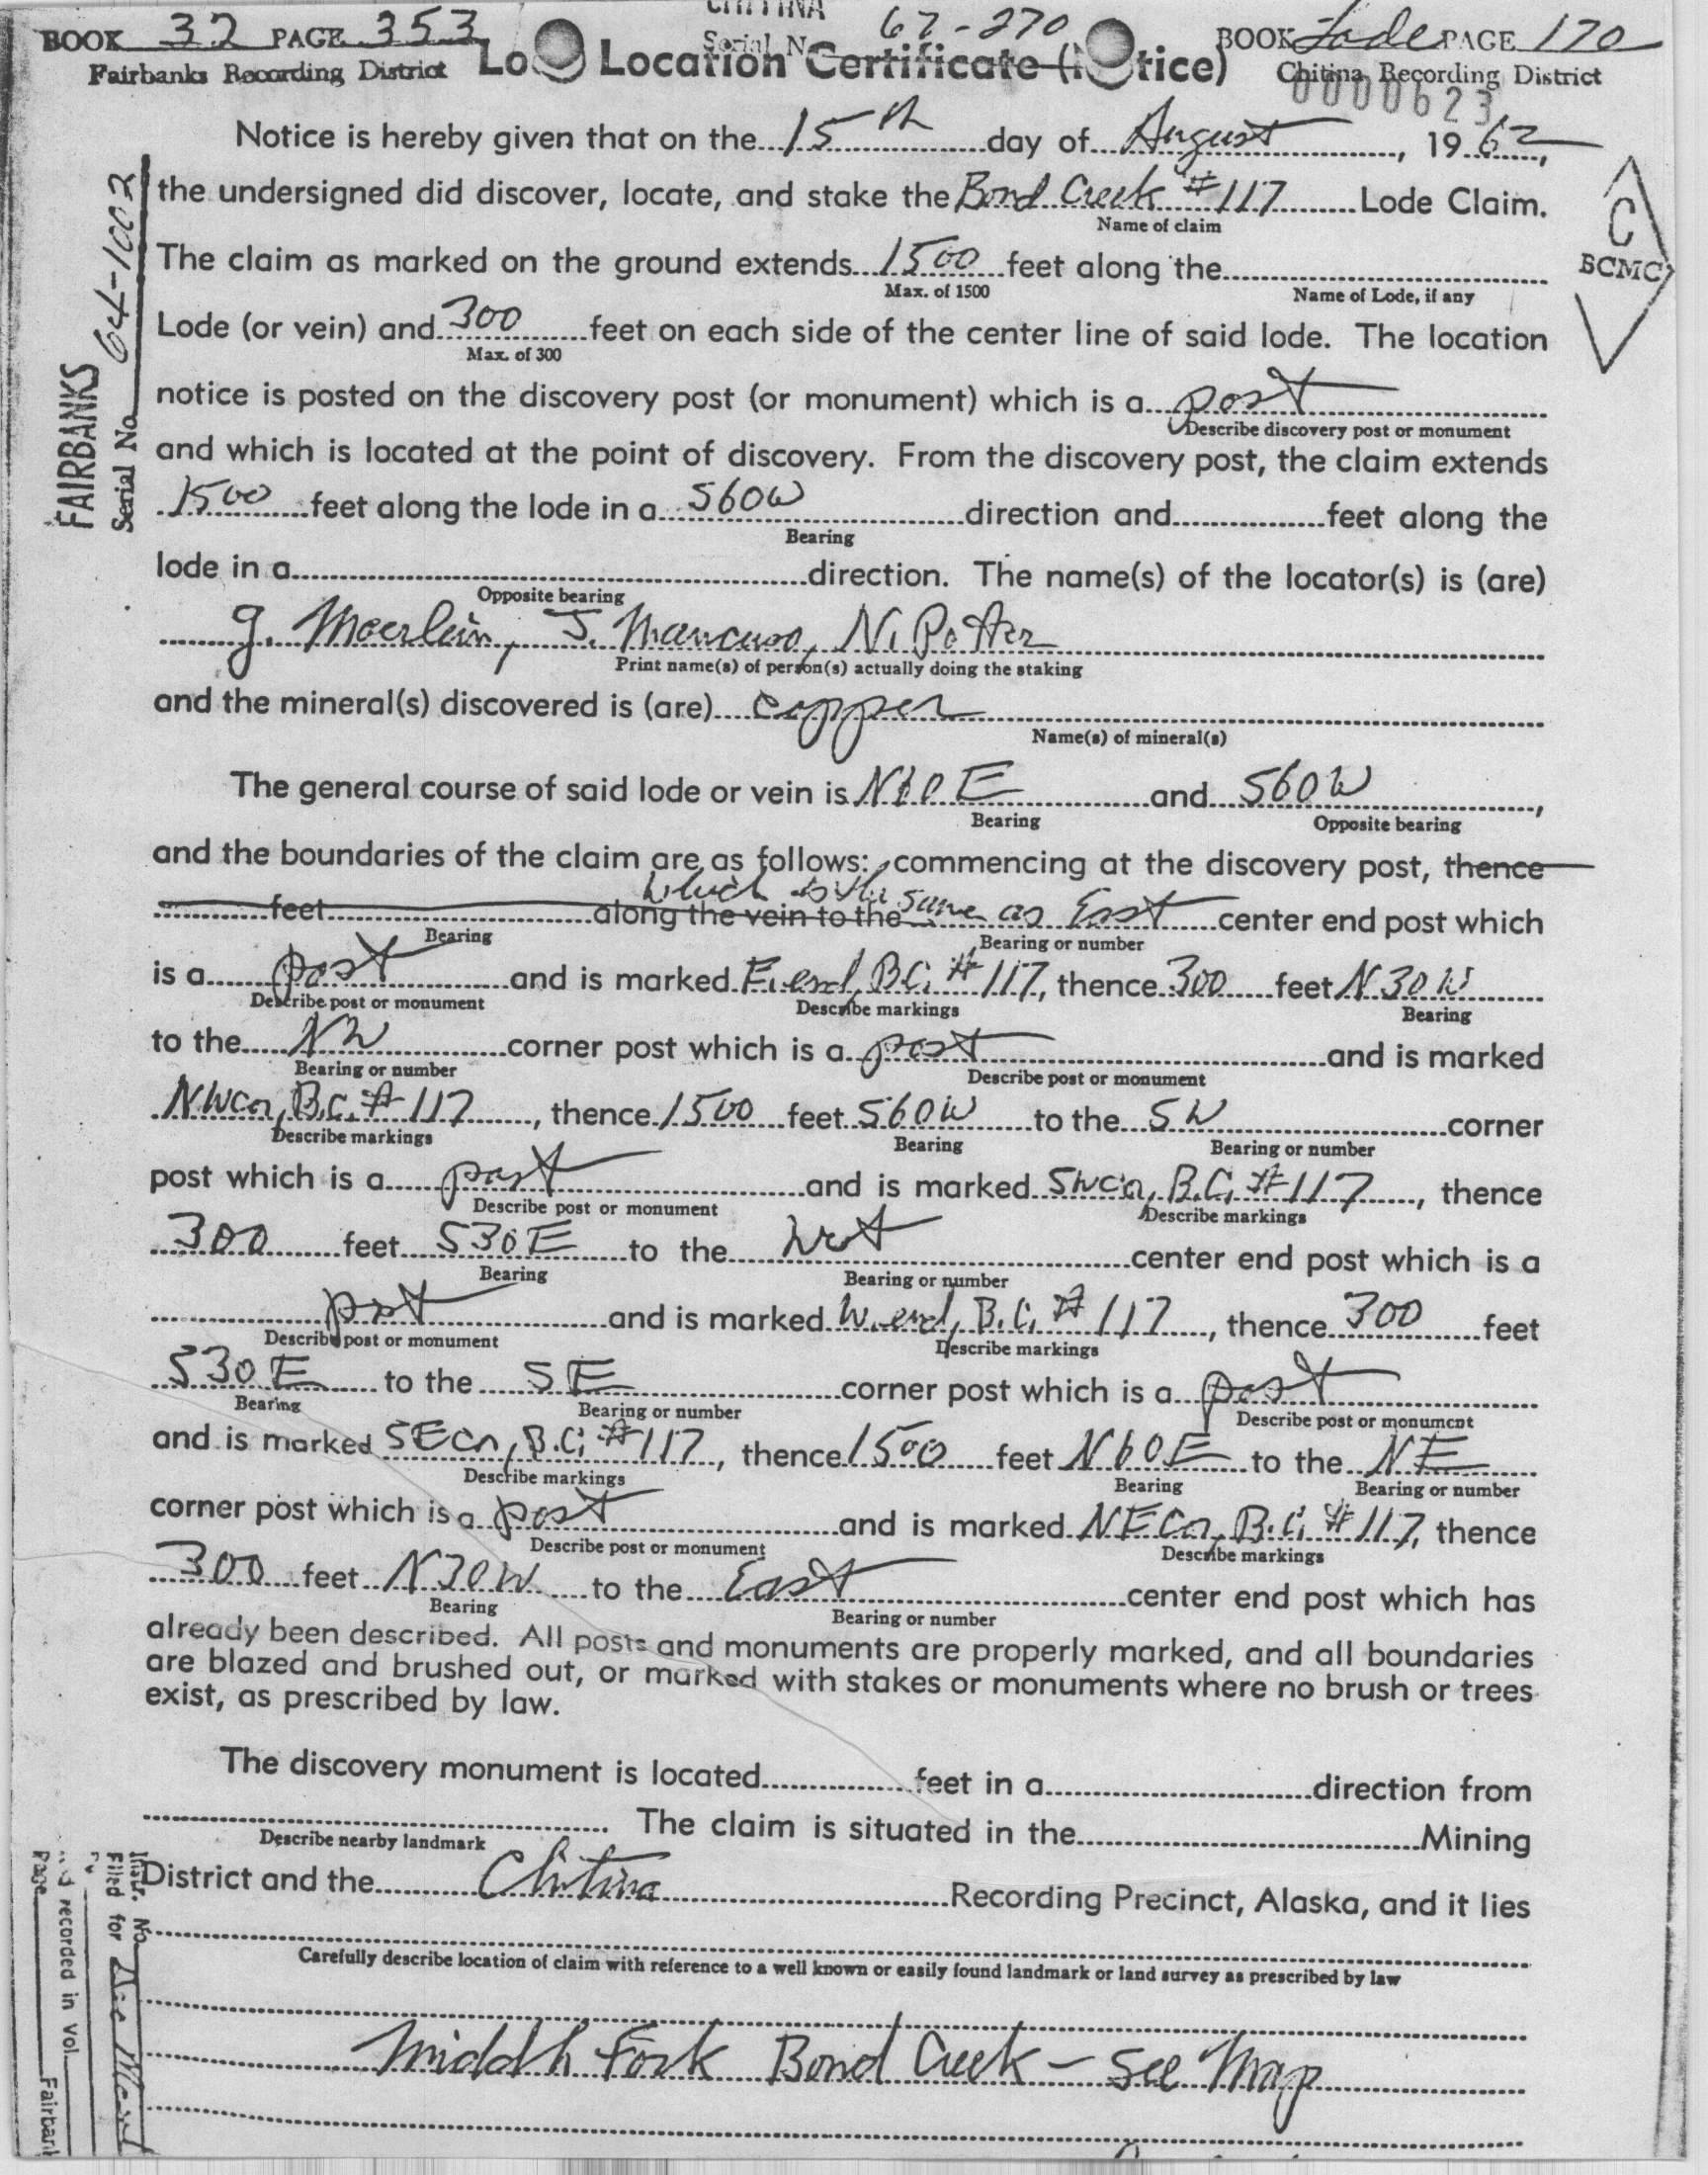 CHITINA
BOOK 32 PAGE 353 Serial No. 67-270 BOOK Lode PAGE 170
Fairbanks Recording District Lo Location Certificate (N tice) Chitina Recording District
0000623
Notice is hereby given that on the 15th day of August, 1962,
the undersigned did discover, locate, and stake the Bond Creek #117 Lode Claim.
Name of claim
The claim as marked on the ground extends 1500 feet along the
Max. of 1500 Name of Lode, if any
Lode (or vein) and 300 feet on each side of the center line of said lode. The location
Max. of 300
notice is posted on the discovery post (or monument) which is a post
Describe discovery post or monument
and which is located at the point of discovery. From the discovery post, the claim extends
1500 feet along the lode in a S60W direction and feet along the
Bearing
lode in a direction. The name(s) of the locator(s) is (are)
Opposite bearing
G. Moerlein, J. Mancuso, N. Potter
Print name(s) of person(s) actually doing the staking
and the mineral(s) discovered is (are) copper
Name(s) of mineral(s)
The general course of said lode or vein is N60E and S60W,
Bearing Opposite bearing
and the boundaries of the claim are as follows: commencing at the discovery post, thence
which is the same as East
feet along the vein to the center end post which
Bearing Bearing or number
is a post and is marked E. end, B.C. #117, thence 300 feet N30W
Describe post or monument Describe markings Bearing
to the NW corner post which is a post and is marked
Bearing or number Describe post or monument
NWcor, B.C. #117, thence 1500 feet S60W to the SW corner
Describe markings Bearing Bearing or number
post which is a post and is marked SWcor, B.C. #117, thence
Describe post or monument Describe markings
300 feet S30E to the West center end post which is a
Bearing Bearing or number
post and is marked W. end, B.C. #117, thence 300 feet
Describe post or monument Describe markings
S30E to the SE corner post which is a post
Bearing Bearing or number Describe post or monument
and is marked SEcor, B.C. #117, thence 1500 feet N60E to the NE
Describe markings Bearing Bearing or number
corner post which is a post and is marked NECor, B.C. #117, thence
Describe post or monument Describe markings
300 feet N30W to the East center end post which has
Bearing Bearing or number
already been described. All posts and monuments are properly marked, and all boundaries
are blazed and brushed out, or marked with stakes or monuments where no brush or trees
exist, as prescribed by law.
The discovery monument is located feet in a direction from
The claim is situated in the Mining
Describe nearby landmark
District and the Chitina Recording Precinct, Alaska, and it lies
Carefully describe location of claim with reference to a well known or easily found landmark or land survey as prescribed by law
Middle Fork Bond Creek - See Map
FAIRBANKS
Serial No. 64-1002
C
BCMC
Instr. No.
Filed for
recorded in Vol.
Page Fairbank